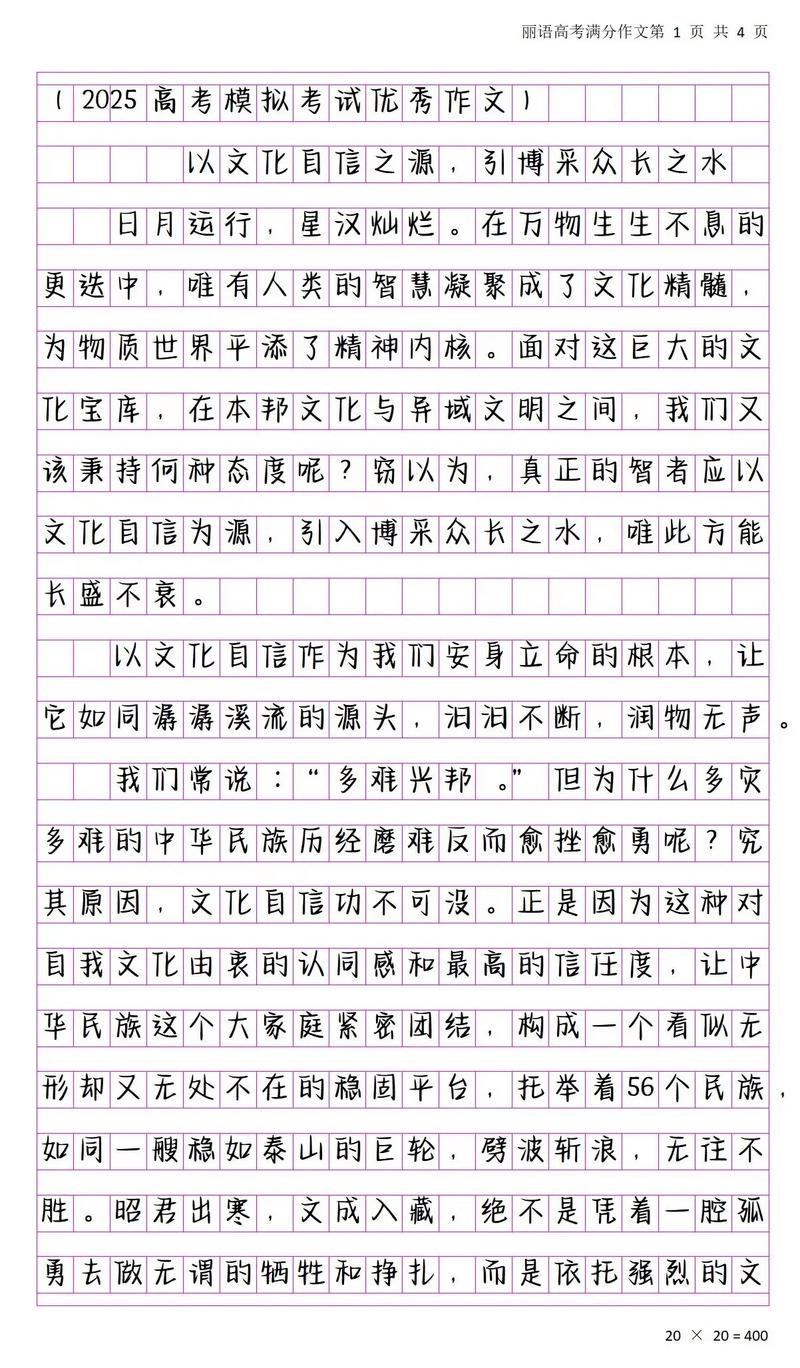 丽语高考满分作文第 1 页 共 4 页
(2025高考模拟考试优秀作文)
以文化自信之源，引博采众长之水
日月运行，星汉灿烂。在万物生生不息的
更迭中，唯有人类的智慧凝聚成了文化精髓，
为物质世界平添了精神内核。面对这巨大的文
化宝库，在本邦文化与异域文明之间，我们又
该秉持何种态度呢？窃以为，真正的智者应以
文化自信为源，引入博采众长之水，唯此方能
长盛不衰。
以文化自信作为我们安身立命的根本，让
它如同潺潺溪流的源头，汩汩不断，润物无声。
我们常说：“多难兴邦。”但为什么多灾
多难的中华民族历经磨难反而愈挫愈勇呢？究
其原因，文化自信功不可没。正是因为这种对
自我文化由衷的认同感和最高的信任度，让中
华民族这个大家庭紧密团结，构成一个看似无
形却又无处不在的稳固平台，托举着56个民族，
如同一艘稳如泰山的巨轮，劈波斩浪，无往不
胜。昭君出寒，文成入藏，绝不是凭着一腔孤
勇去做无谓的牺牲和挣扎，而是依托强烈的文
20 × 20 = 400